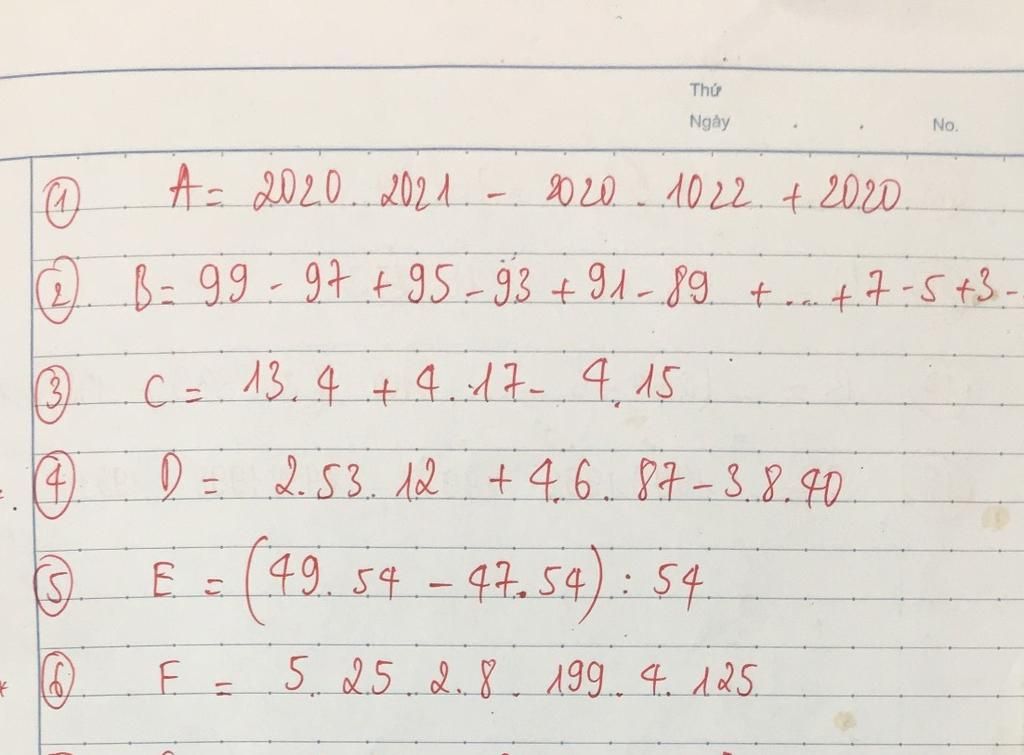 Thứ
Ngày . . No.
① A = 2020 . 2021 - 2020 . 1022 + 2020
② B = 99 - 97 + 95 - 93 + 91 - 89 + ... + 7 - 5 + 3 -
③ C = 13.4 + 4.17 - 4.15
④ D = 2.53.12 + 4.6.87 - 3.8.40
⑤ E = (49.54 - 47.54) : 54
⑥ F = 5.25.2.8.199.4.125